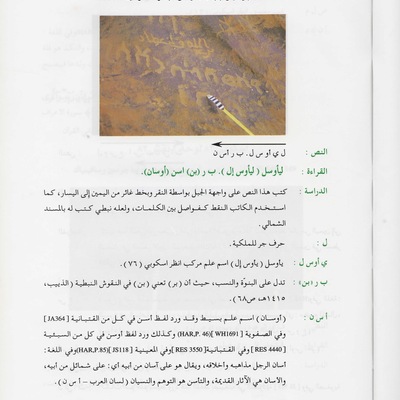 النص : ل ي أ و س ل . ب ر أ س ن
القراءة : ليأوسل (ليأوس إل) . ب ر (بن) اسن (أوسان).
الدراسة : كتب هذا النص على واجهة الجبل بواسطة النقر وبخط غائر من اليمين إلى اليسار، كما
استخدم الكاتب النقط كفواصل بين الكلمات، ولعله نبطي كتب له بالمسند
الشمالي.
ل : حرف جر للملكية.
ي أ و س ل : يأوسل (يأوس إل) اسم علم مركب انظر اسكوبي (٧٦).
ب ر «بن» : تدل على البنوّة والنسب، حيث أن (بر) تعني (بن) في النقوش النبطية (الذييب،
١٤١٥هـ، ص٦٨).
أ س ن : (أوسان) اسم علم بسيط وقد ورد لفظ أوسن في كل من القتبانية [JA364]
وفي الصفوية [WH1691] (HAR,P. 46) وكذلك ورد لفظ أوسن في كل من السبئية
[RES 4440] وفي القتبانية [RES 3550] وفي المعينية [JS118] (HAR,P.85) وفي اللغة:
أسان الرجل مذاهبه وأخلاقه، ويقال هو على آسان من أبيه أي: على شمائل من أبيه،
والآسان هي الآثار القديمة، والأسن هو التوهم والنسيان (لسان العرب – أ س ن).